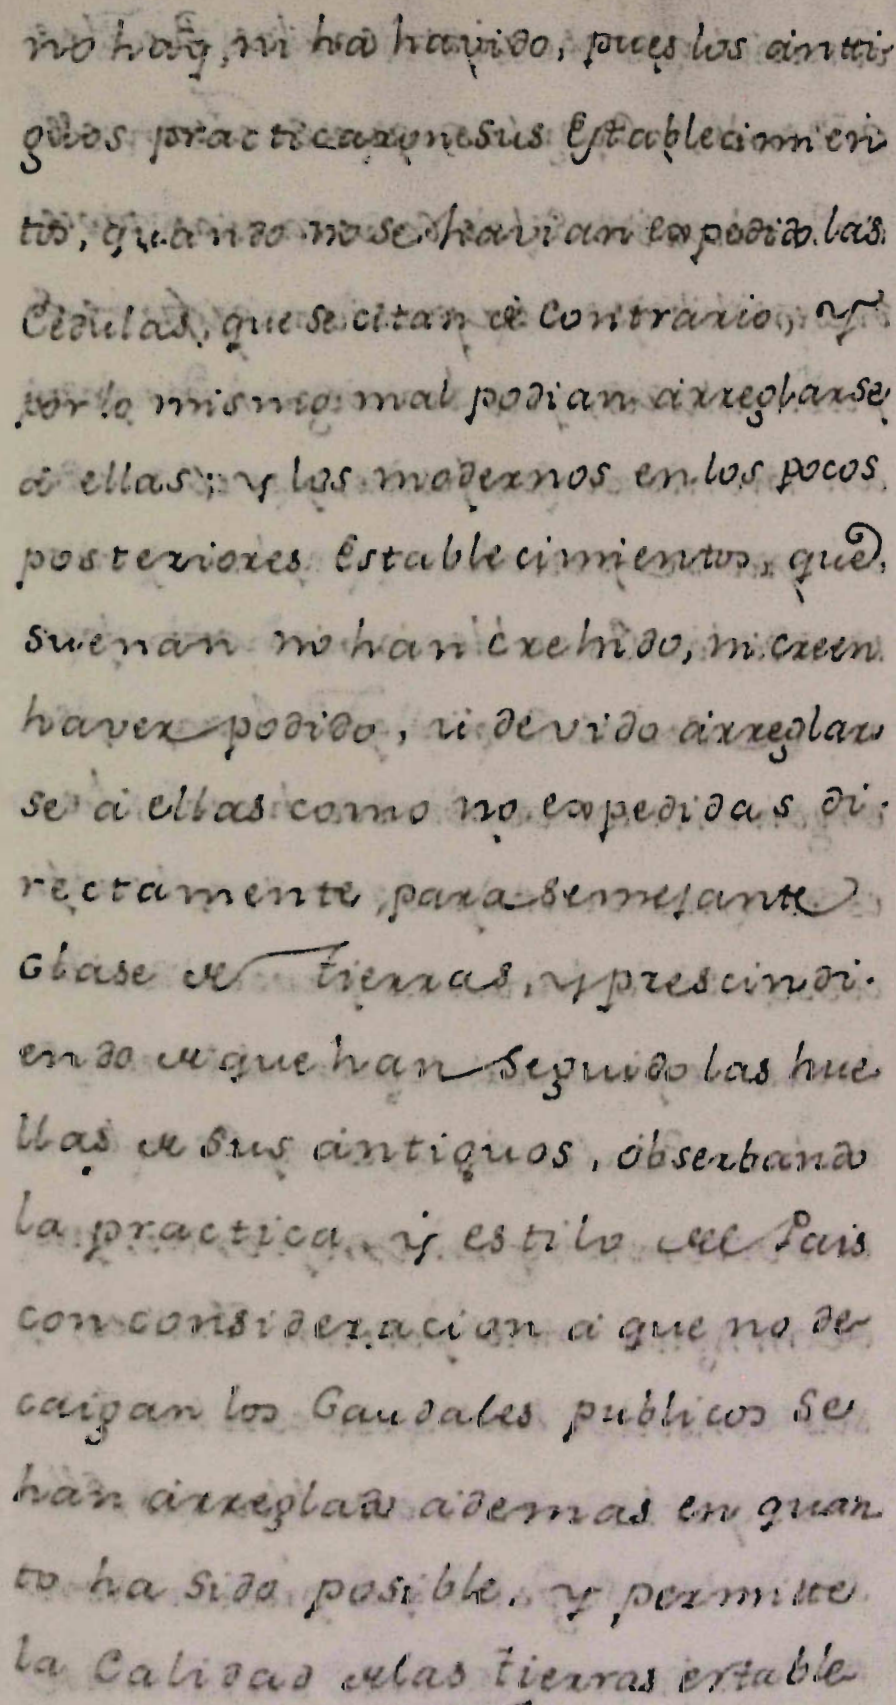 no hay, ni há havido, pues los ántti
guos practicaron sus Establecimien
tos, quando no se havian expedido las
Cedulas, que se citan de Contrario, y
por lo mismo mal podian árreglarse
á ellas; y los modernos en los pocos
posteriores Establecimientos, que
suenan no han crehido, ni creen
haver podido, ú devido árreglar
se á ellas como no expedidas di
rectamente para semejante
Clase de tierras, y prescindi
endo de que han seguido las hue
llas de sus ántiguos, obserbando
la practica, y estilo del Pais
con consideracion á que no de
caigan los Caudales publicos se
han árreglado ádemas en quan
to ha sido posible, y permite
la Calidad de las tierras estable